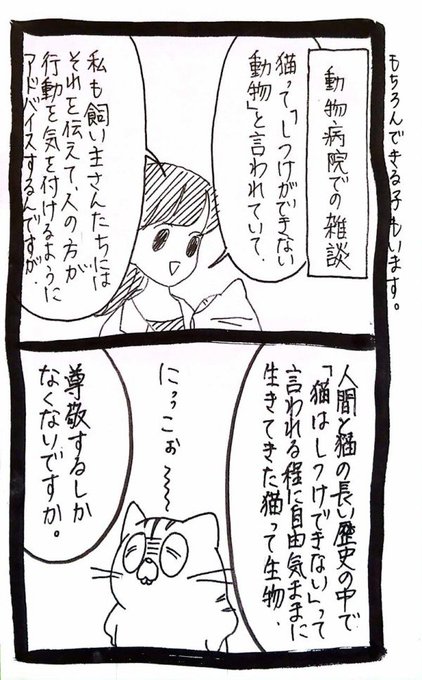 もちろんできる子もいます。
動物病院での雑談
猫って「しつけができない
動物」と言われていて、
私も飼い主さんたちには
それを伝えて、人の方が
行動を気を付けるように
アドバイスするんですが、
人間と猫の長い歴史の中で
「猫はしつけできない」って
言われる程に自由気ままに
生きてきた猫って生物、
にっこぉ〜〜
尊敬するしか
なくないですか。